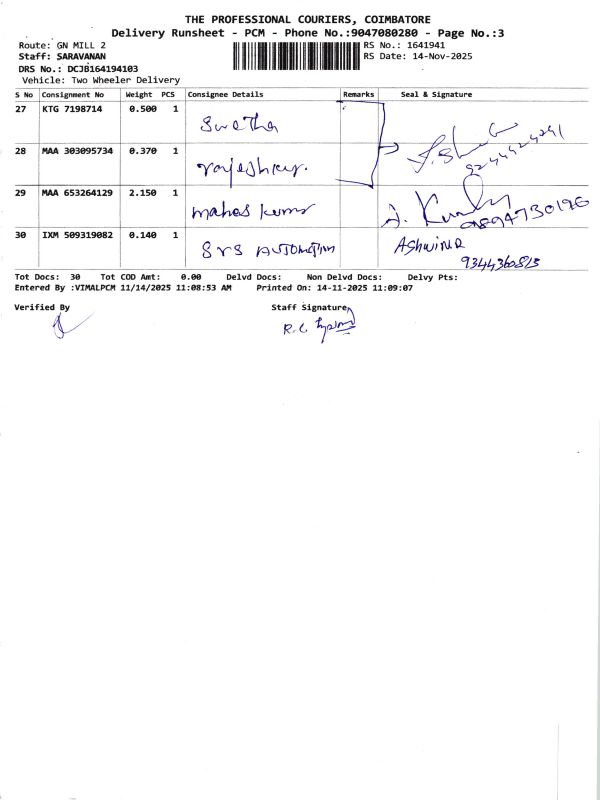 THE PROFESSIONAL COURIERS, COIMBATORE
Delivery Runsheet - PCM - Phone No.:9047080280 - Page No.:3
Route: GN MILL 2
RS No.: 1641941
Staff: SARAVANAN
RS Date: 14-Nov-2025
DRS No.: DCJB164194103
Vehicle: Two Wheeler Delivery
S No Consignment No Weight PCS Consignee Details Remarks Seal & Signature
27 KTG 7198714 0.500 1 Swetha
28 MAA 303095734 0.370 1
29 MAA 653264129 2.150 1 mahes kumar
30 IXM 509319082 0.140 1 SRS AUTOMATION ASHWINA
9344360813
Tot Docs: 30 Tot COD Amt: 0.00 Delvd Docs: Non Delvd Docs: Delvy Pts:
Entered By :VIMALPCM 11/14/2025 11:08:53 AM Printed On: 14-11-2025 11:09:07
Verified By Staff Signature